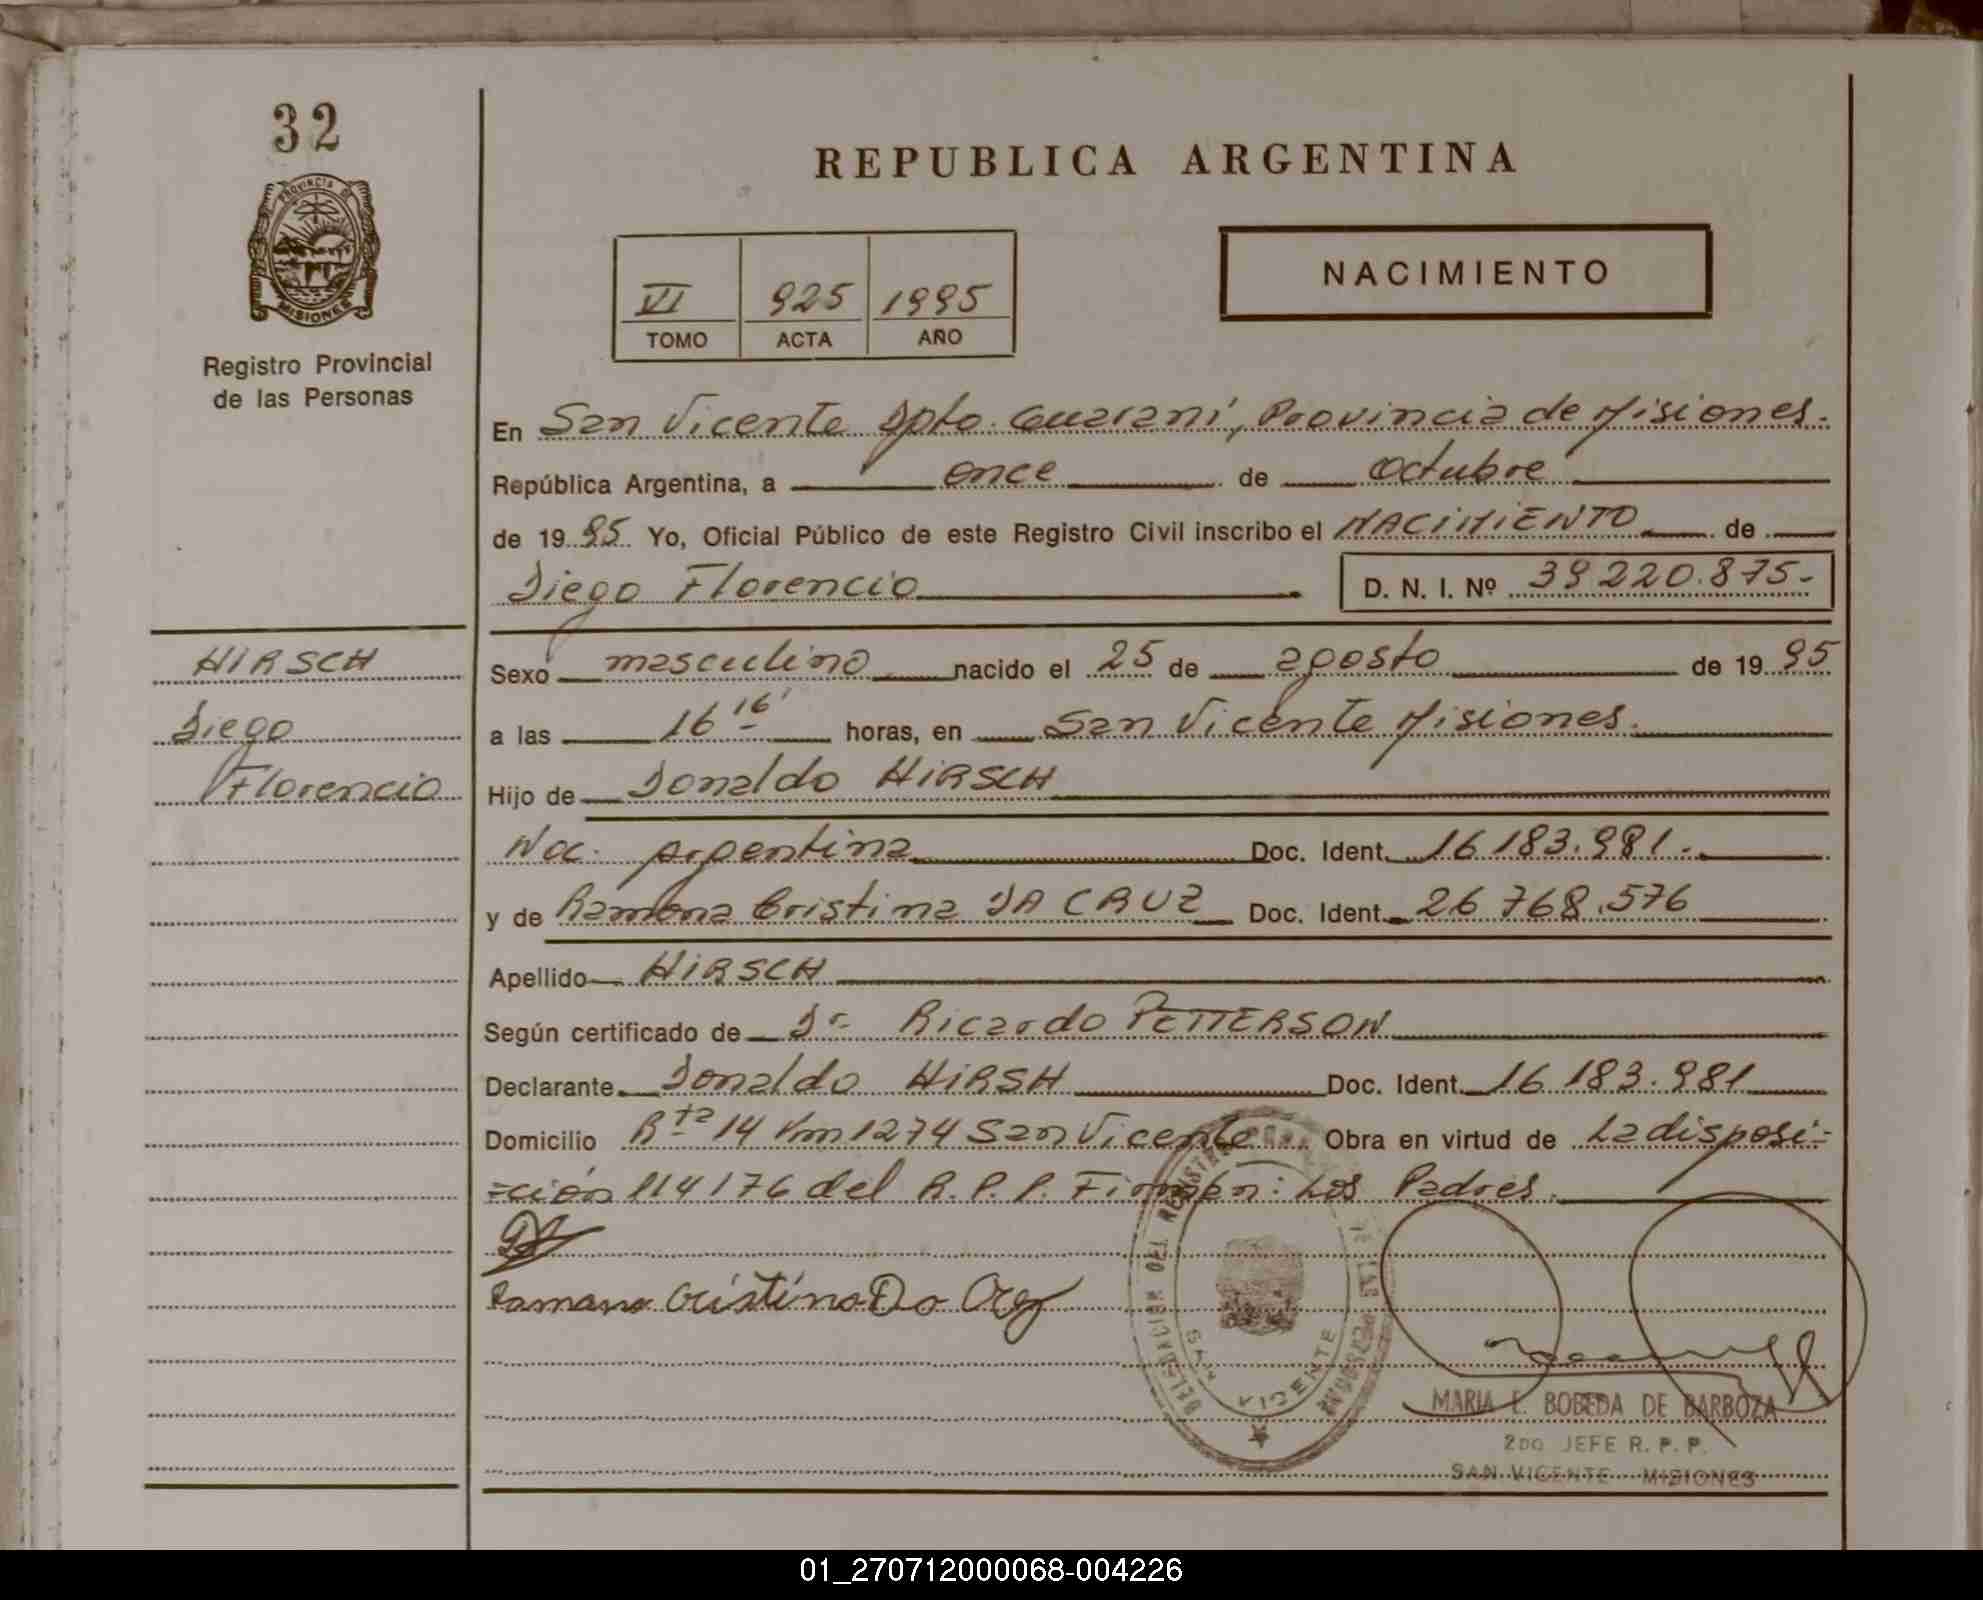 32
PROVINCIA DE
MISIONES
Registro Provincial
de las Personas
REPUBLICA ARGENTINA
VI 925 1995
TOMO ACTA AÑO
NACIMIENTO
En San Vicente Dpto. Guaraní, Provincia de Misiones.
República Argentina, a once de octubre
de 1995 Yo, Oficial Público de este Registro Civil inscribo el NACIMIENTO de
Diego Florencio D. N. I. Nº 39 220.875.-
HIRSCH
Diego
Florencio
Sexo masculino nacido el 25 de agosto de 1995
a las 16 16' horas, en San Vicente Misiones.
Hijo de Donaldo HIRSCH
Nac. Argentina Doc. Ident. 16 183.981.-
y de Ramona Cristina DA CRUZ Doc. Ident. 26 768.576
Apellido HIRSCH
Según certificado de Dr. Ricardo PETTERSON
Declarante Donaldo HIRSH Doc. Ident. 16 183.981
Domicilio Rta 14 Km 1274 San Vicente Obra en virtud de La disposi-
-ción 114/76 del R.P.P. Firman: Los Padres.
Ramona Cristina Da Cruz
DELEGACION DEL REGISTRO DE LAS PERSONAS
SAN VICENTE
MARIA E. BOBEDA DE BARBOZA
2DO JEFE R. P. P.
SAN VICENTE MISIONES
01_270712000068-004226